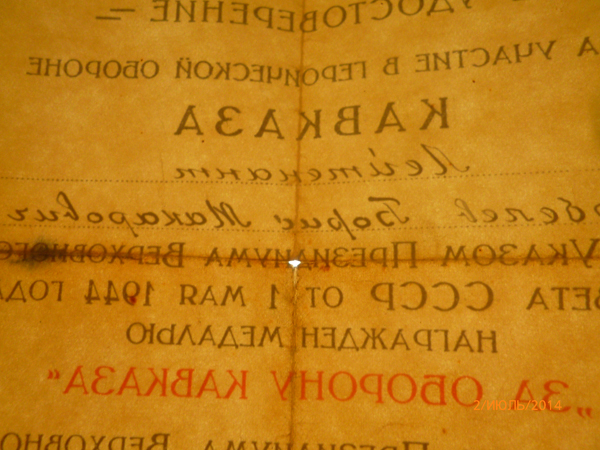 УДОСТОВЕРЕНИЕ —
А УЧАСТИЕ В ГЕРОИЧЕСКОЙ ОБОРОНЕ
КАВКАЗА
Лейтенант
Борис Макарович
УКАЗОМ ПРЕЗИДИУМА ВЕРХОВНОГО
ВЕТА СССР ОТ 1 МАЯ 1944 ГОДА
НАГРАЖДЕН МЕДАЛЬЮ
„ЗА ОБОРОНУ КАВКАЗА“
2/ИЮЛЬ/2014
ПРЕЗИДИУМА ВЕРХОВНО